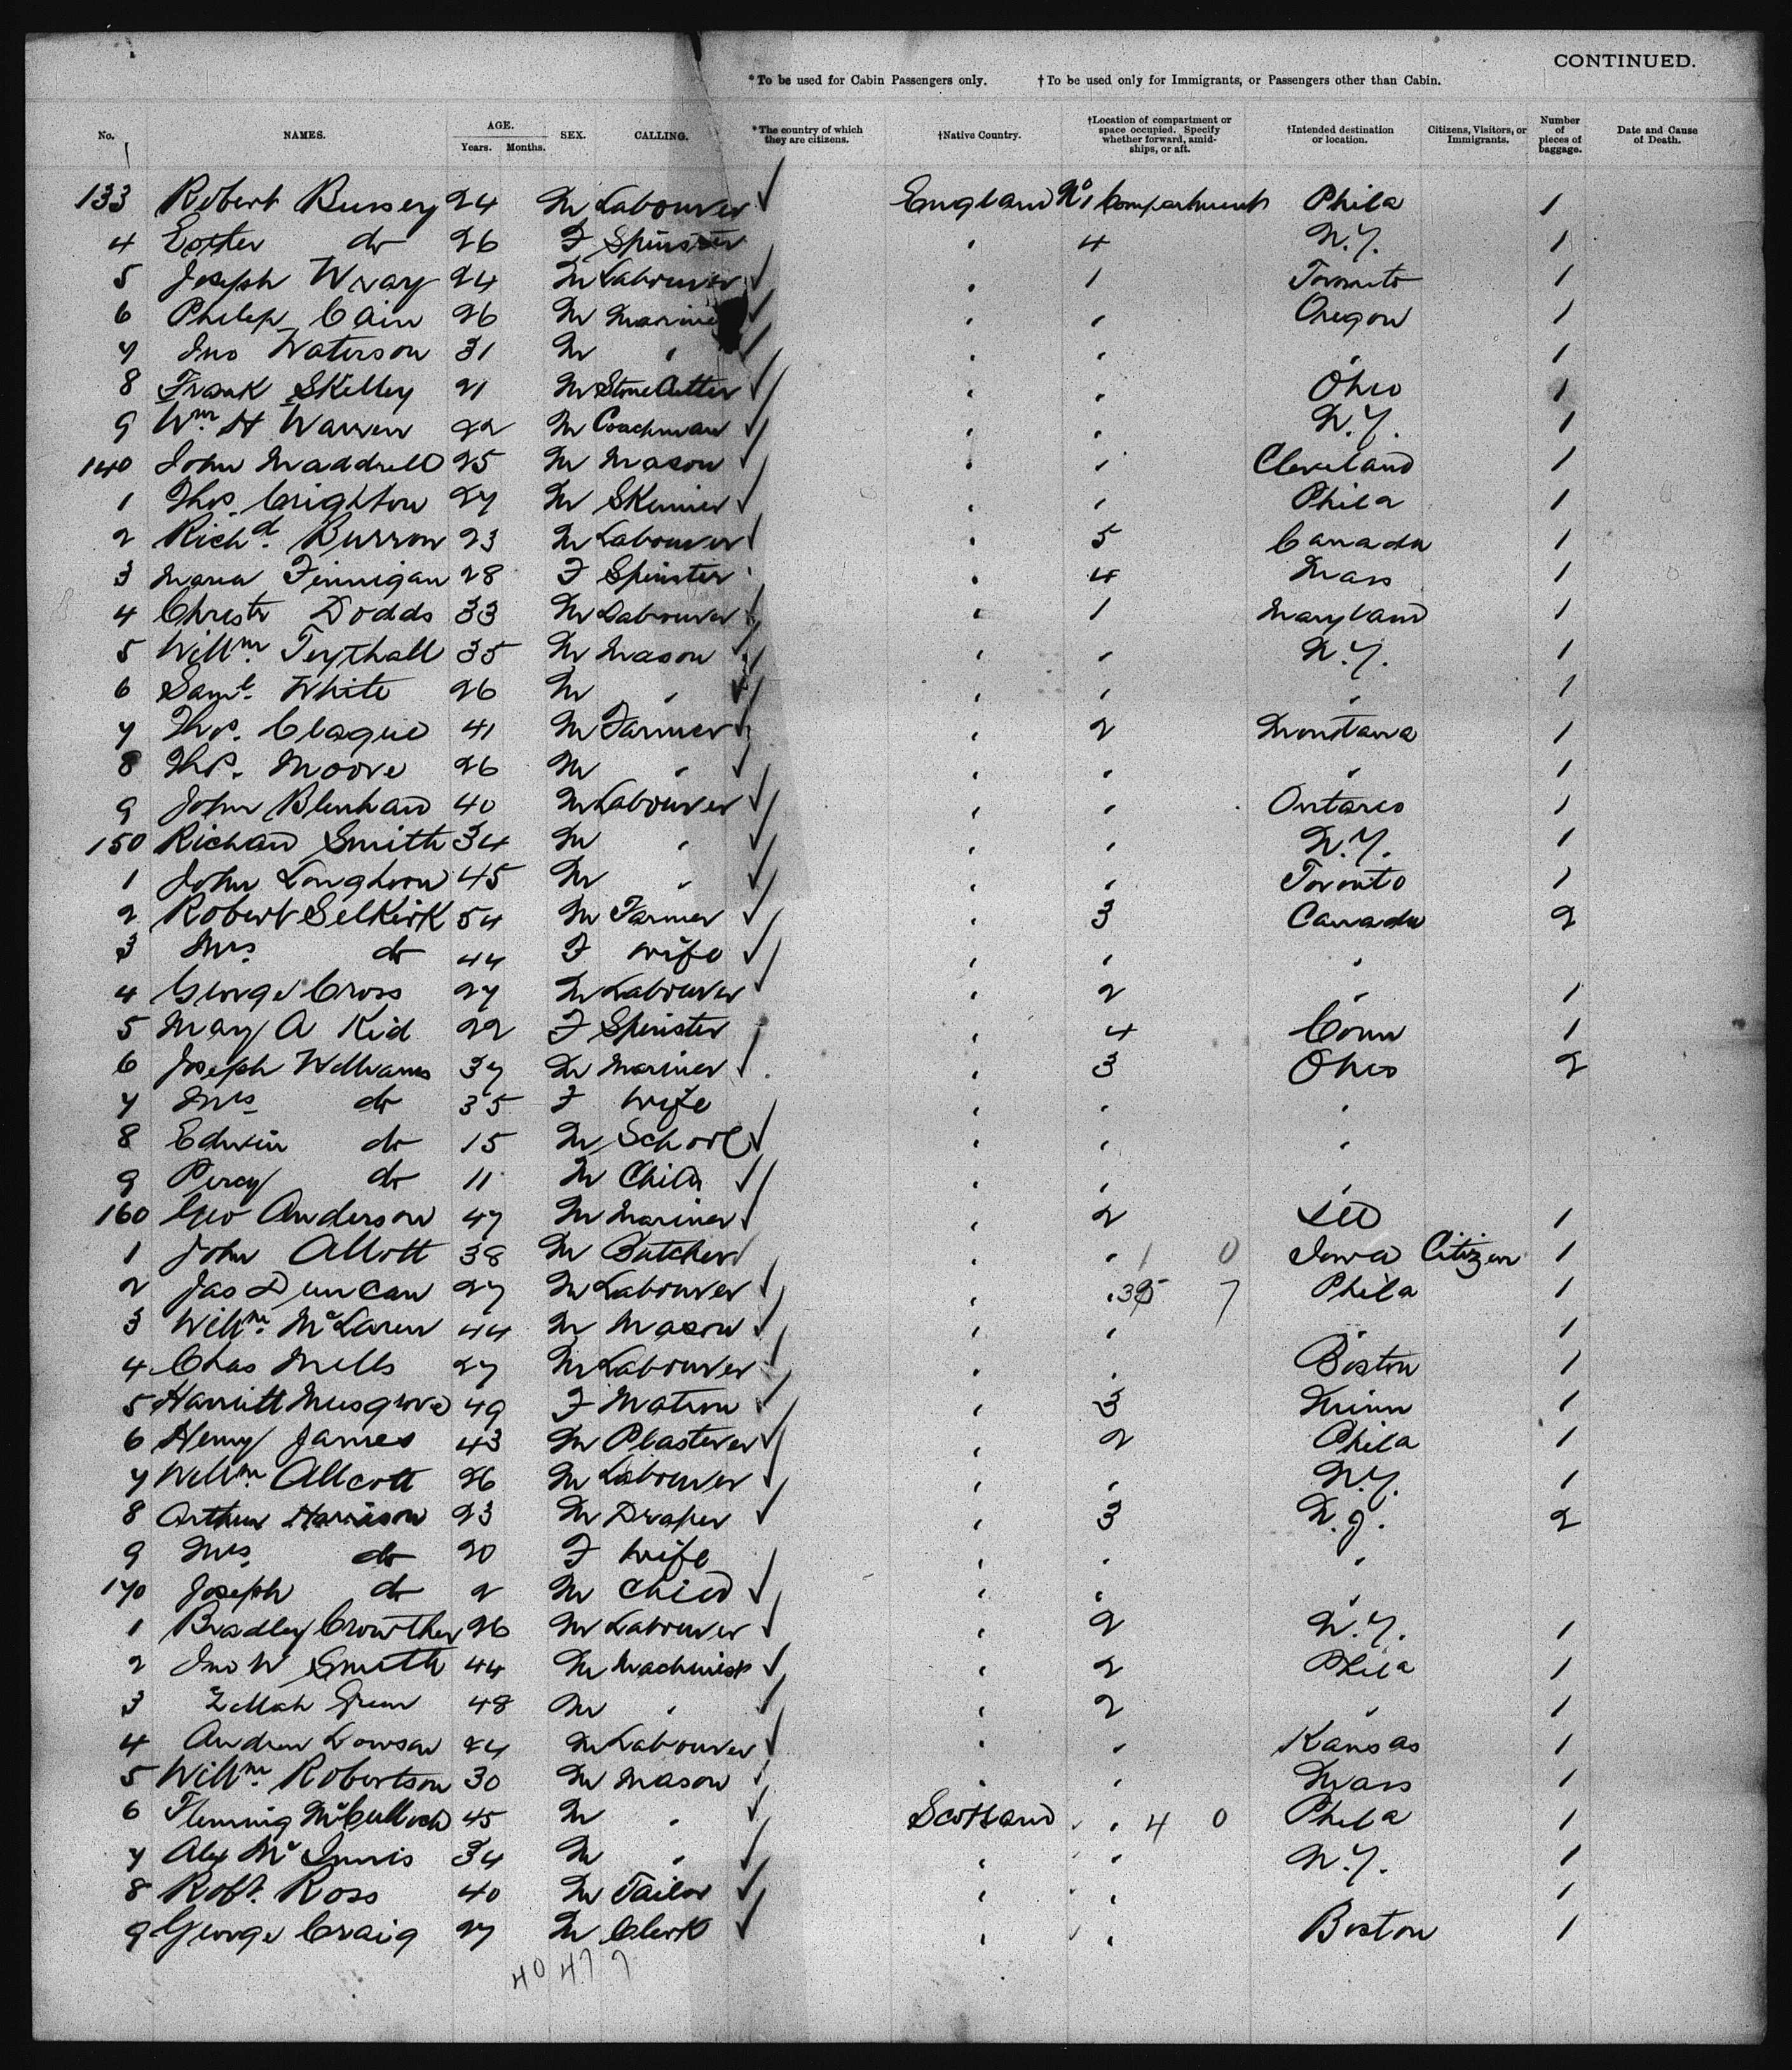 CONTINUED.
*To be used for Cabin Passengers only. †To be used only for Immigrants, or Passengers other than Cabin.
No. NAMES. AGE. Years. Months. SEX. CALLING. *The country of which they are citizens. †Native Country. †Location of compartment or space occupied. Specify whether forward, amidships, or aft. †Intended destination or location. Citizens, Visitors, or Immigrants. Number of pieces of baggage. Date and Cause of Death.
133 Robert Bussey 24 M Labourer ✓ England No 1 Compartment Phila 1
4 Esther do 26 F Spinster " 4 N.Y. 1
5 Joseph Wray 24 M Labourer ✓ " 1 Toronto 1
6 Philip Cain 26 M Mariner ✓ " " Oregon 1
7 Jno Waterson 31 M " ✓ " " " 1
8 Frank Skelley 21 M Stone Cutter ✓ " " Ohio 1
9 Wm H Warren 22 M Coachman ✓ " " N.Y. 1
140 John Maddrell 25 M Mason ✓ " " Cleveland 1
1 Thos. Crighton 27 M Skinner ✓ " " Phila 1
2 Richd. Burrow 23 M Labourer ✓ " 5 Canada 1
3 Maria Finnigan 28 F Spinster " 4 Mass 1
4 Christr Dodds 33 M Labourer ✓ " 1 Maryland 1
5 Willm. 35 M Mason ✓ " " N.Y. 1
6 Saml. White 26 M " ✓ " " " 1
7 Thos. Clague 41 M Farmer ✓ " 2 Montana 1
8 Thos. Moore 26 M " ✓ " " " 1
9 John Blenhard 40 M Labourer ✓ " " Ontario 1
150 Richard Smith 34 M " ✓ " " N.Y. 1
1 John Longhorn 45 M " ✓ " " Toronto 1
2 Robert Selkirk 54 M Farmer ✓ " 3 Canada 2
3 Mrs do 44 F wife ✓ " " "
4 George Cross 27 M Labourer ✓ " 2 " 1
5 Mary A Kid 22 F Spinster " 4 Conn 1
6 Joseph Williams 37 M Mariner ✓ " 3 Ohio 2
7 Mrs do 35 F wife " " "
8 Edwin do 15 M School ✓ " " "
9 Percy do 11 M Child ✓ " " "
160 Geo Anderson 47 M Mariner ✓ " 2 Ill 1
1 John Allott 38 M Butcher ✓ " " 1 0 Iowa Citizen 1
2 Jas Duncan 27 M Labourer ✓ " " 7 Phila 1
3 Willm. McLaren 44 M Mason ✓ " " " 1
4 Chas Mills 27 M Labourer ✓ " " Boston 1
5 Harriett Musgrove 49 F Matron ✓ " 3 Minn 1
6 Henry James 43 M Plasterer ✓ " 2 Phila 1
7 Willm. Allcott 26 M Labourer ✓ " " N.Y. 1
8 Arthur Harrison 23 M Draper ✓ " 3 N.J. 2
9 Mrs. do 20 F wife " " "
170 Joseph do 2 M Child ✓ " " "
1 Bradley Crowther 26 M Labourer ✓ " 2 N.Y. 1
2 Jno W Smith 44 M Machinist ✓ " 2 Phila 1
3 Zillah 48 M " ✓ " 2 " 1
4 Andrew Lowson 24 M Labourer ✓ " " Kansas 1
5 Willm. Robertson 30 M Mason ✓ " " Mass 1
6 Fleming McCulloch 45 M " ✓ Scotland " 4 0 Phila 1
7 Alex McInnis 34 M " ✓ " " N.Y. 1
8 Robt. Ross 40 M Tailor ✓ " " " 1
9 George Craig 27 M Clerk ✓ " " Boston 1
40 47 7